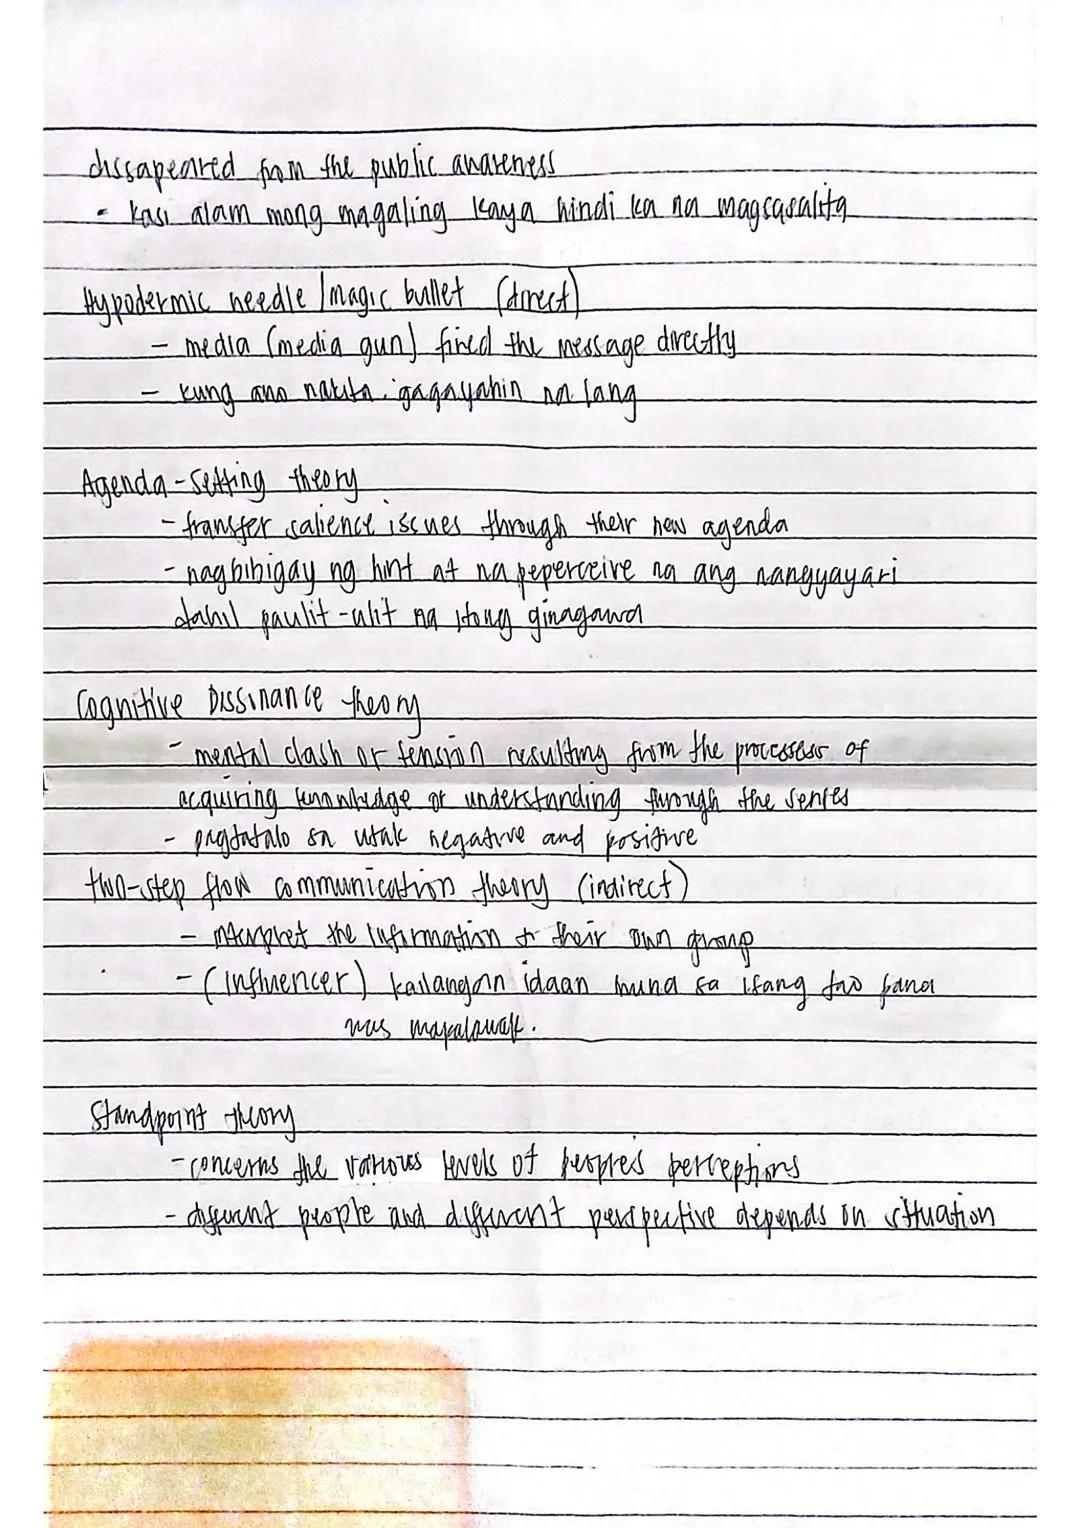 dissapeared from the public awareness
- kasi alam mong magaling kaya hindi ka na magsasalita
Hypodermic needle / magic bullet (direct)
- media (media gun) fired the message directly
- kung ano nakita, gagayahin na lang
Agenda-setting theory
- transfer salience issues through their new agenda
- nagbibigay ng hint at na peperceive na ang nangyayari
dahil paulit-ulit na itong ginagawa
Cognitive Dissinance theory
- mental clash or tension resulting from the processess of
acquiring knowledge or understanding through the senses
- pagtatalo sa utak negative and positive
two-step flow communication theory (indirect)
- interpret the information to their own group
- (influencer) kailangan idaan muna sa isang tao para
mas mapalawak.
Standpoint theory
- concerns the various levels of people's perceptions
- different people and different perspective depends on situation